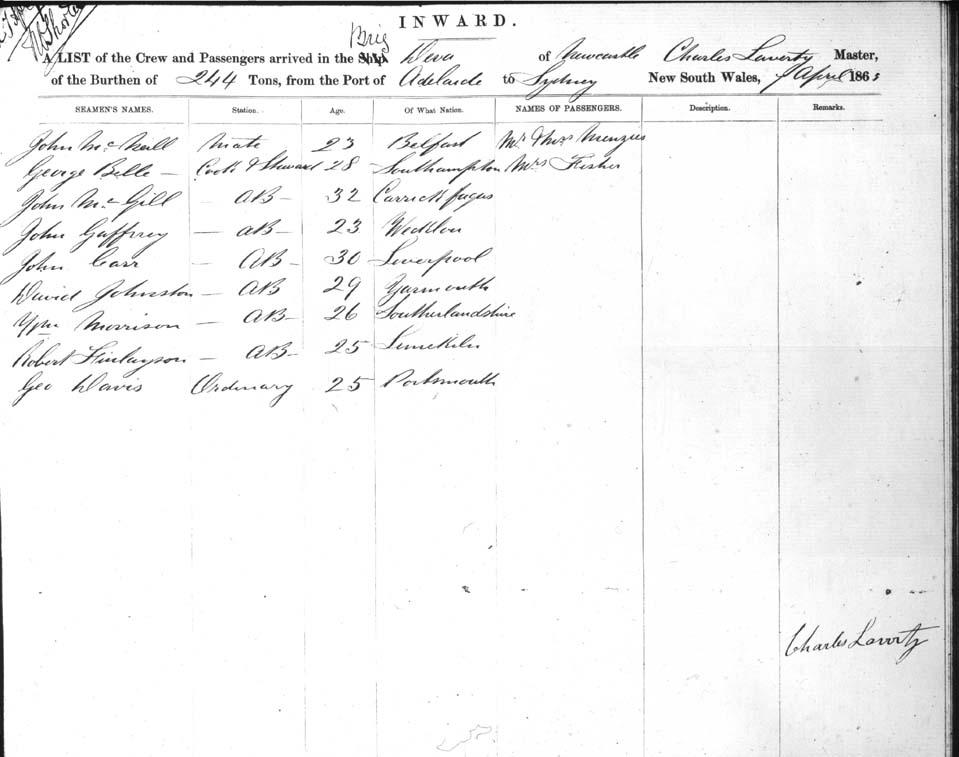 INWARD.
Brig
A LIST of the Crew and Passengers arrived in the Ship Deva of Newcastle Charles Laverty Master,
of the Burthen of 244 Tons, from the Port of Adelaide to Sydney New South Wales, April 186
SEAMEN'S NAMES. Station. Age. Of What Nation. NAMES OF PASSENGERS. Description. Remarks.
John McNeill Mate 23 Belfast Mr & Mrs Menzies
George Belle — Cook & Steward 28 Southampton Mrs Fisher
John McGill — AB — 32 Carrickfugus
John Gaffney — AB — 23 Wicklow
John Carr — AB — 30 Liverpool
David Johnston — AB 29 Yarmouth
Wm Morrison — AB — 26 Southerlandshire
Robert Finlayson — AB — 25 Limekiln
Geo Davis Ordinary 25 Portsmouth
Charles Laverty